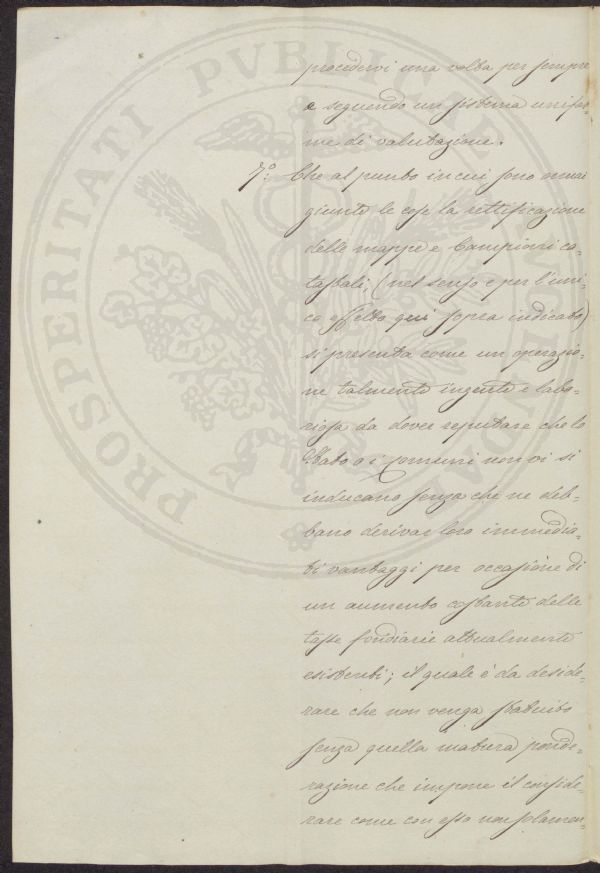 procedervi una volta per sempre
e seguendo un sistema unifor-
me di valutazione.
7.° Che al punto in cui sono omai
giunte le cose la rettificazione
delle mappe e Campioni ca-
tastali, (nel senso e per l'uni-
co effetto qui sopra indicato)
si presenta come un operazio-
ne talmente ingente e labo-
riosa da dover reputare che lo
Stato o i Comuni non vi si
inducano senza che ne deb-
bano derivar loro immedia-
ti vantaggi per occasione di
un aumento costante delle
tasse fondiarie attualmente
esistenti; il quale è da deside-
rare che non venga statuito
senza quella matura ponde-
razione che impone il conside-
rare come con esso non solamen-
PROSPERITATI PVBLICAE AVGENDAE